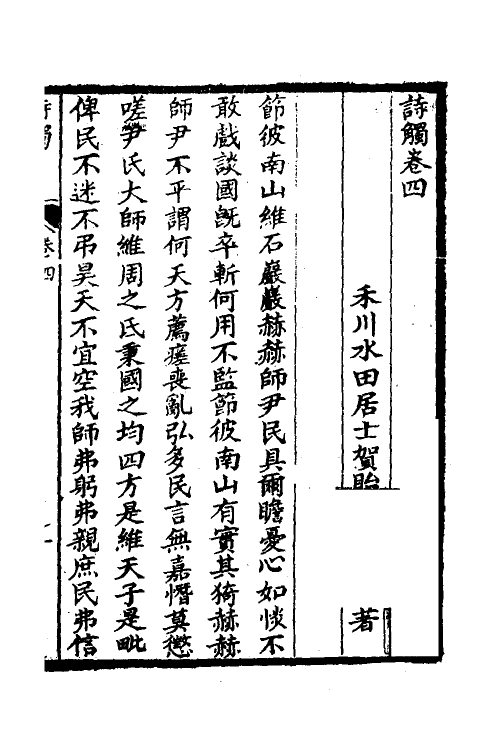 詩觸卷四
禾川水田居士賀貽　著
節彼南山維石巖巖赫赫師尹民具爾瞻憂心如惔不
敢戲談國旣卒斬何用不監節彼南山有實其猗赫赫
師尹不平謂何天方薦瘥喪亂弘多民言無嘉憯莫懲
嗟尹氏大師維周之氐秉國之均四方是維天子是毗
俾民不迷不弔昊天不宜空我師弗躬弗親庶民弗信
卷四